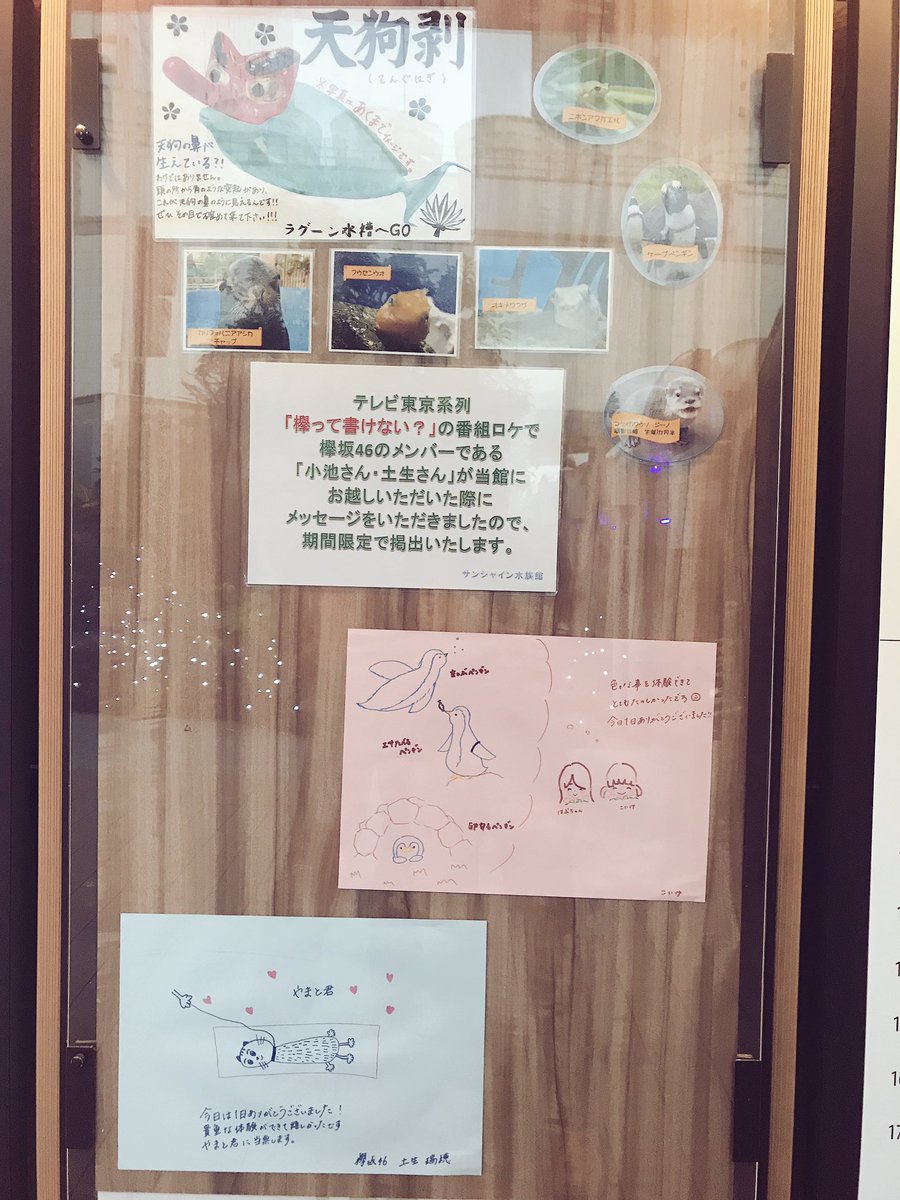 天狗剥
(てんぐはぎ)
※写真はあくまでイメージです。
天狗の鼻が
生えている?!
わけではありません。
頭の所から角のような突起があり、
これが天狗の鼻のように見えるんです!!
ぜひその目で確めて来て下さい!!!
ラグーン水槽へGO
ニホンアマガエル
ケープペンギン
カリフォルニアアシカ
チャップ
フウセンウオ
コツメカワウソ ジーノ
テレビ東京系列
「欅って書けない?」の番組ロケで
欅坂46のメンバーである
「小池さん・土生さん」が当館に
お越しいただいた際に
メッセージをいただきましたので、
期間限定で掲出いたします。
サンシャイン水族館
空とぶペンギン
エサたべる
ペンギン
卵守るペンギン
色々な事を体験できて
とてもたのしかったです
今日1日ありがとうございました!!
はぶちゃん
こいけ
こいけ
やまと君
今日は1日ありがとうございました!
貴重な体験ができて嬉しかったです
やまと君に当薬します。
欅坂46 土生 瑞穂
1
1
1
16
17